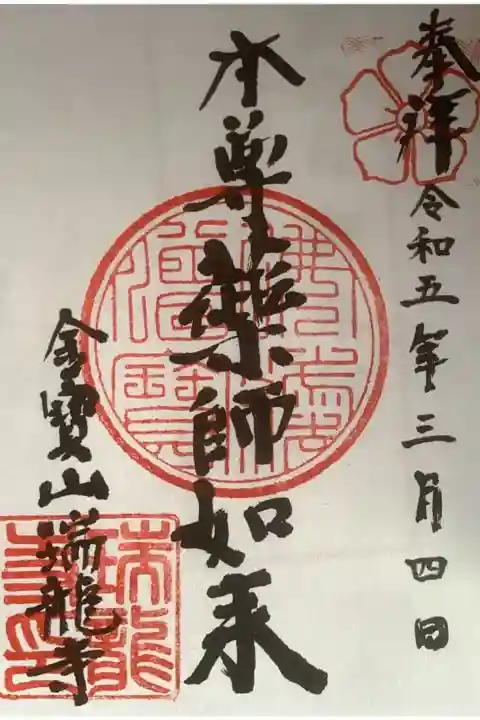 奉拝
令和五年三月四日
本尊薬師如来
金寶山瑞龍寺
佛法僧寶
瑞龍寺印